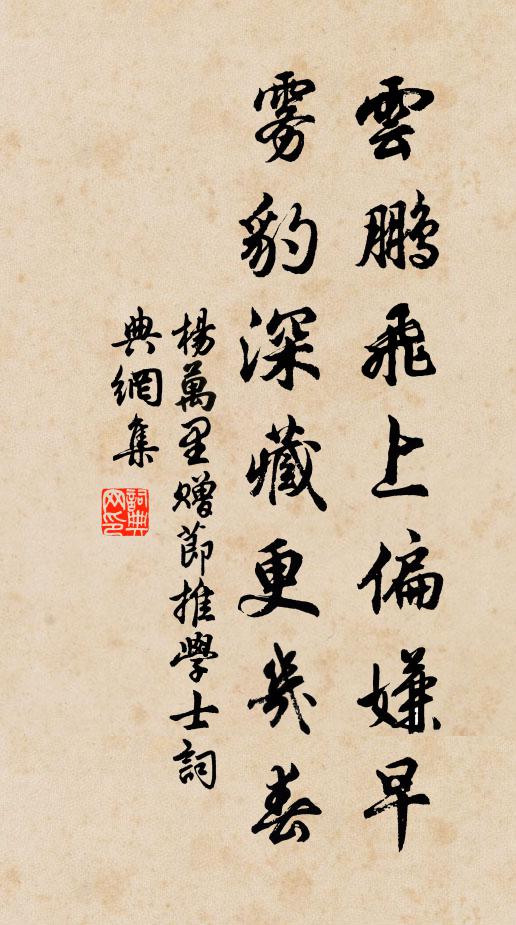 雲鵬飛上偏嫌早
雾豹深藏更幾春
楊萬里贈節推學士詞
典網集
詞典網印